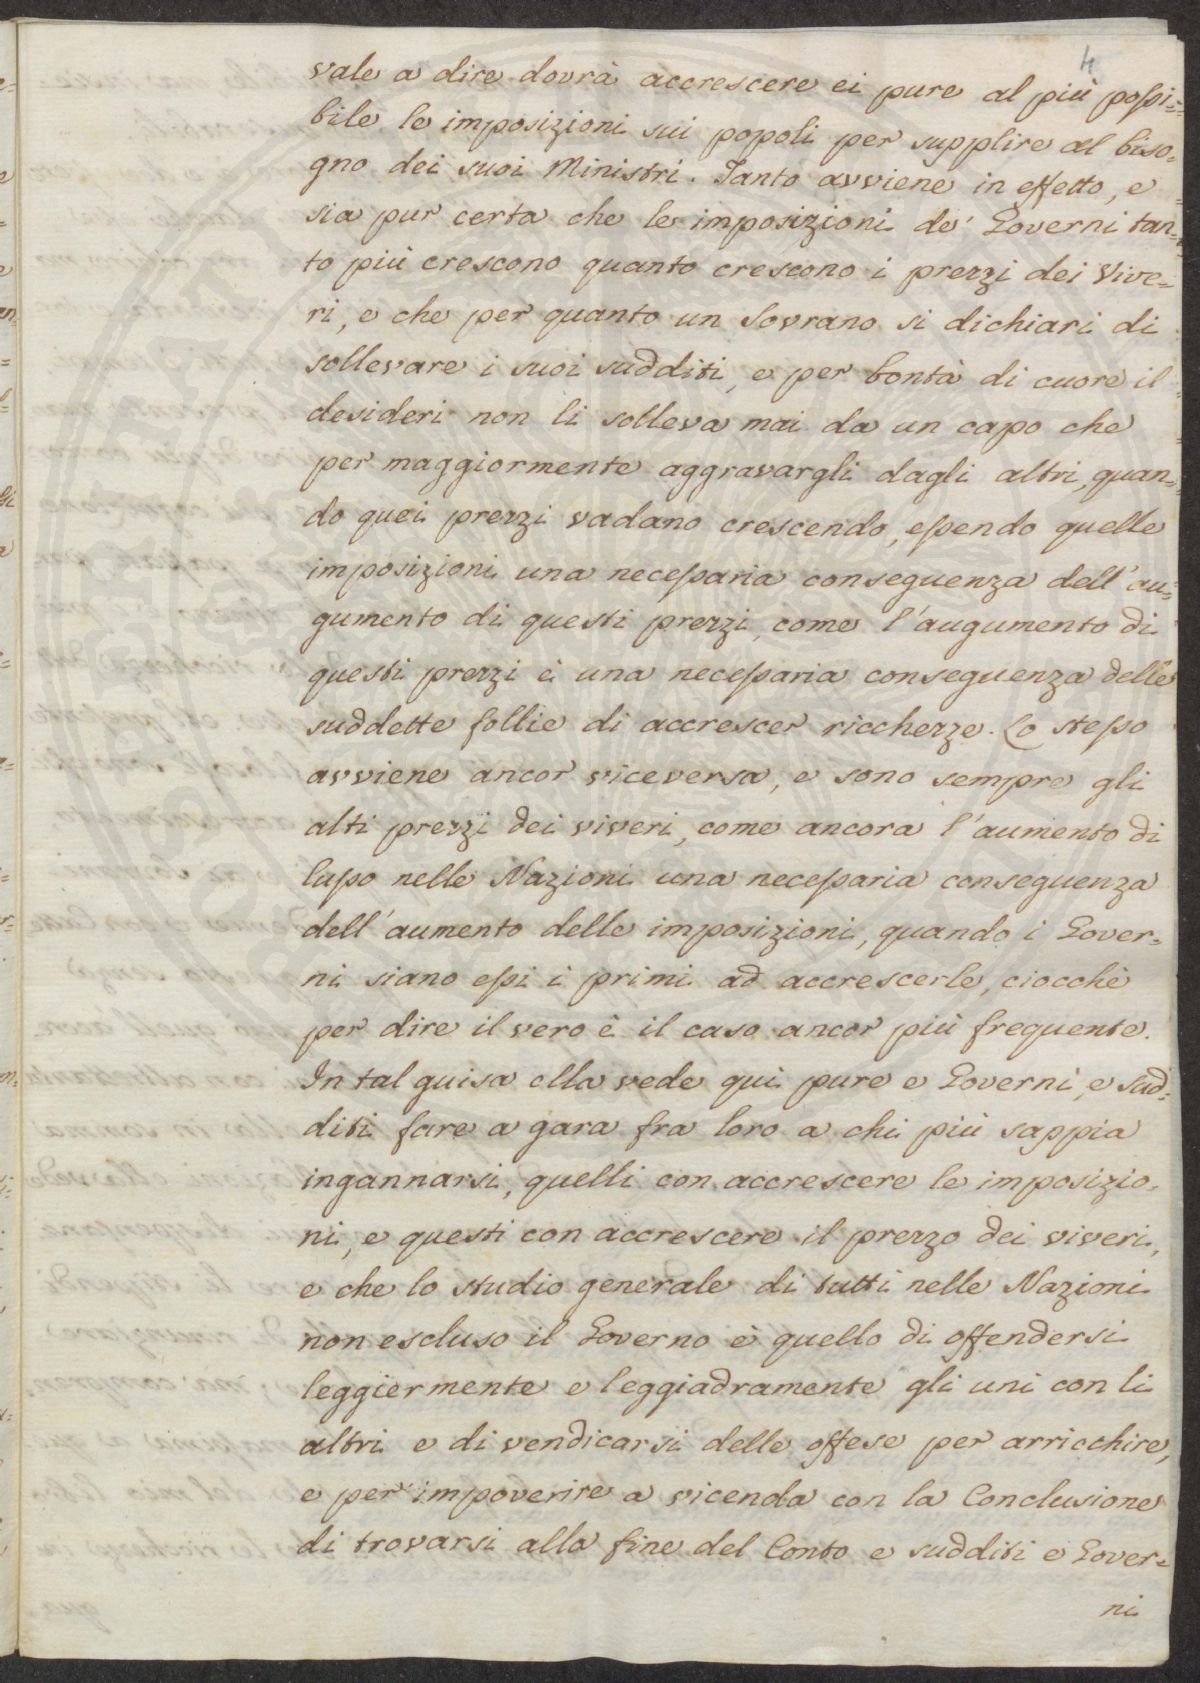 4
vale a dire dovrà accrescere ei pure al più possi=
bile le imposizioni sui popoli per supplire al biso=
gno dei suoi Ministri. Tanto avviene in effetto, e
sia pur certa che le imposizioni de' Governi tan=
to più crescono quanto crescono i prezzi dei Vive=
ri, e che per quanto un Sovrano si dichiari di
sollevare i suoi sudditi, e per bontà di cuore il
desideri non li solleva mai da un capo che
per maggiormente aggravargli dagli altri, quan=
do quei prezzi vadano crescendo, essendo quelle
imposizioni una necessaria conseguenza dell'au=
gumento di questi prezzi, come l'augumento di
questi prezzi è una necessaria conseguenza delle
suddette follie di accrescer ricchezze. Lo stesso
avviene ancor viceversa, e sono sempre gli
alti prezzi dei viveri, come ancora l'aumento di
lusso nelle Nazioni una necessaria conseguenza
dell'aumento delle imposizioni, quando i Gover=
ni siano essi i primi ad accrescerle, ciocchè
per dire il vero è il caso ancor più frequente.
In tal guisa ella vede qui pure e Governi, e sud=
diti fare a gara fra loro a chi più sappia
ingannarsi, quelli con accrescere le imposizio=
ni, e questi con accrescere il prezzo dei viveri,
e che lo studio generale di tutti nelle Nazioni
non escluso il Governo è quello di offendersi
leggiermente e leggiadramente gli uni con li
altri e di vendicarsi delle offese per arricchire,
e per impoverire a vicenda con la Conclusione
di trovarsi alla fine del Conto e sudditi e Gover=
ni